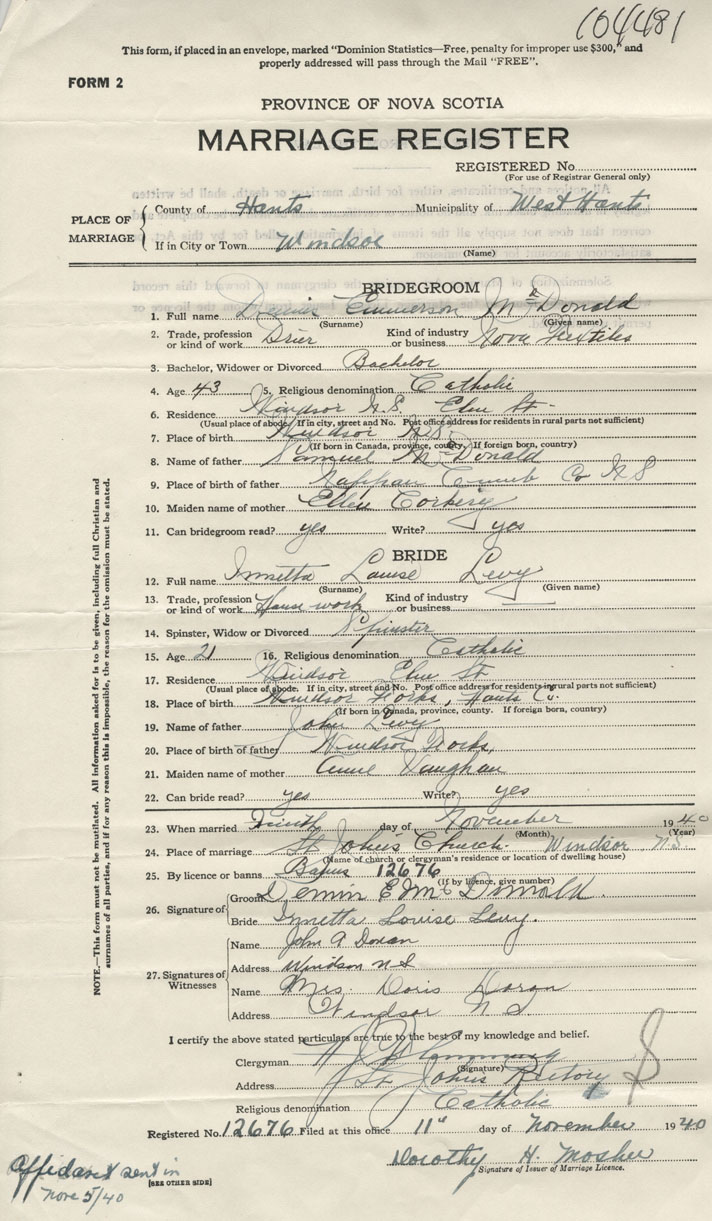 104481
This form, if placed in an envelope, marked "Dominion Statistics—Free, penalty for improper use $300," and
properly addressed will pass through the Mail "FREE".
FORM 2
PROVINCE OF NOVA SCOTIA
MARRIAGE REGISTER
REGISTERED No.
(For use of Registrar General only)
PLACE OF MARRIAGE
County of Hants Municipality of West Hants
If in City or Town Windsor
(Name)
BRIDEGROOM
1. Full name Emmerson McDonald
(Surname) (Given name)
2. Trade, profession or kind of work Drier Kind of industry or business Nova Textiles
3. Bachelor, Widower or Divorced Bachelor
4. Age 43 5. Religious denomination Catholic
6. Residence Windsor N.S. Elm St.
(Usual place of abode. If in city, street and No. Post office address for residents in rural parts not sufficient)
7. Place of birth Windsor N.S.
(If born in Canada, province, county. If foreign born, country)
8. Name of father Samuel McDonald
9. Place of birth of father Cumb Co N S
10. Maiden name of mother Ellen Corkery
11. Can bridegroom read? yes Write? yes
BRIDE
12. Full name Innetta Louise Levy
(Surname) (Given name)
13. Trade, profession or kind of work House work Kind of industry or business
14. Spinster, Widow or Divorced Spinster
15. Age 21 16. Religious denomination Catholic
17. Residence Windsor Elm St
(Usual place of abode. If in city, street and No. Post office address for residents in rural parts not sufficient)
18. Place of birth Windsor Forks, Hants Co.
(If born in Canada, province, county. If foreign born, country)
19. Name of father John Levy
20. Place of birth of father Windsor Forks,
21. Maiden name of mother Annie Vaughan
22. Can bride read? yes Write? yes
23. When married day of November 1940
(Month) (Year)
24. Place of marriage St John's Church. Windsor N.S.
(Name of church or clergyman's residence or location of dwelling house)
25. By licence or banns 12676
(If by licence, give number)
26. Signature of
Groom E McDonald
Bride Innetta Louise Levy.
27. Signatures of Witnesses
Name John A Doran
Address Windsor N S
Name Mrs. Doris Doran
Address Windsor N S
I certify the above stated particulars are true to the best of my knowledge and belief.
Clergyman
(Signature)
Address St Johns Rectory
Religious denomination Catholic
Registered No. 12676 Filed at this office 11" day of November 1940
Dorothy H. Mosher
Signature of Issuer of Marriage Licence.
Affidavit sent in
Nov 5/40
[SEE OTHER SIDE]
NOTE.—This form must not be mutilated. All information asked for is to be given, including full Christian and
surnames of all parties, and if for any reason this is impossible, the reason for the omission must be stated.